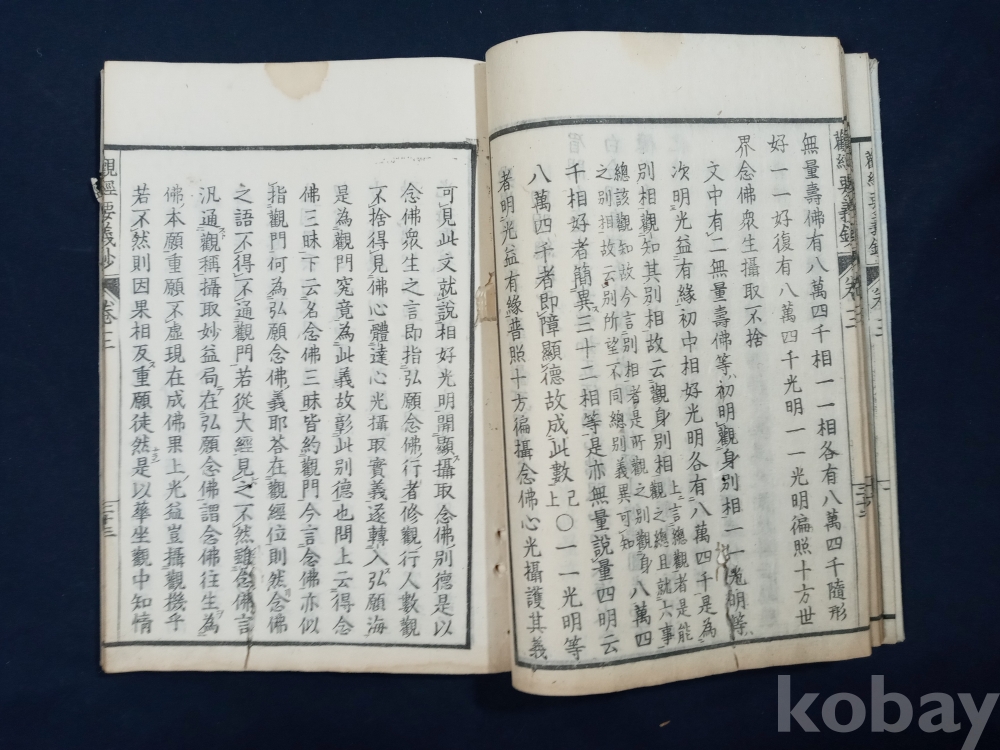 無量壽佛有八萬四千相一一相各有八萬四千隨形
好一一好復有八萬四千光明一一光明徧照十方世
界念佛衆生攝取不捨
文中有二無量壽佛等初明觀身別相一一光明等
次明光益有緣初中相好光明各有八萬四千是為
別相觀知其別相故云觀身別相上言總觀者是能觀之總且就六事
總該觀知故今言別相者是所觀之別觀身
之別相故云別所望不同總別義異可知
八萬四
千相好者簡異三十二相等是亦無量說量四明云
八萬四千者即障顯德故成此數上已〇一一光明等
者明光益有緣普照十方徧攝念佛心光攝護其義
觀經要義鈔 卷三
可見此文就說相好光明開顯攝取念佛別德是以
念佛衆生之言即指弘願念佛行者修觀行人數觀
不捨得見佛心體達心光攝取實義遂轉入弘願海
是為觀門究竟為此義故彰此別德也問上云得念
佛三昧下云名念佛三昧皆約觀門今言念佛亦似
指觀門何為弘願念佛義耶荅在觀經位則然念佛
之語不得不通觀門若從大經見之不然雖念佛言
汎通觀稱攝取妙益局在弘願念佛謂念佛往生為
佛本願重願不虛現在成佛果上光益豈攝觀機乎
若不然則因果相反重願徒然是以華坐觀中知情
觀經要義鈔 卷三 三十三
kobay